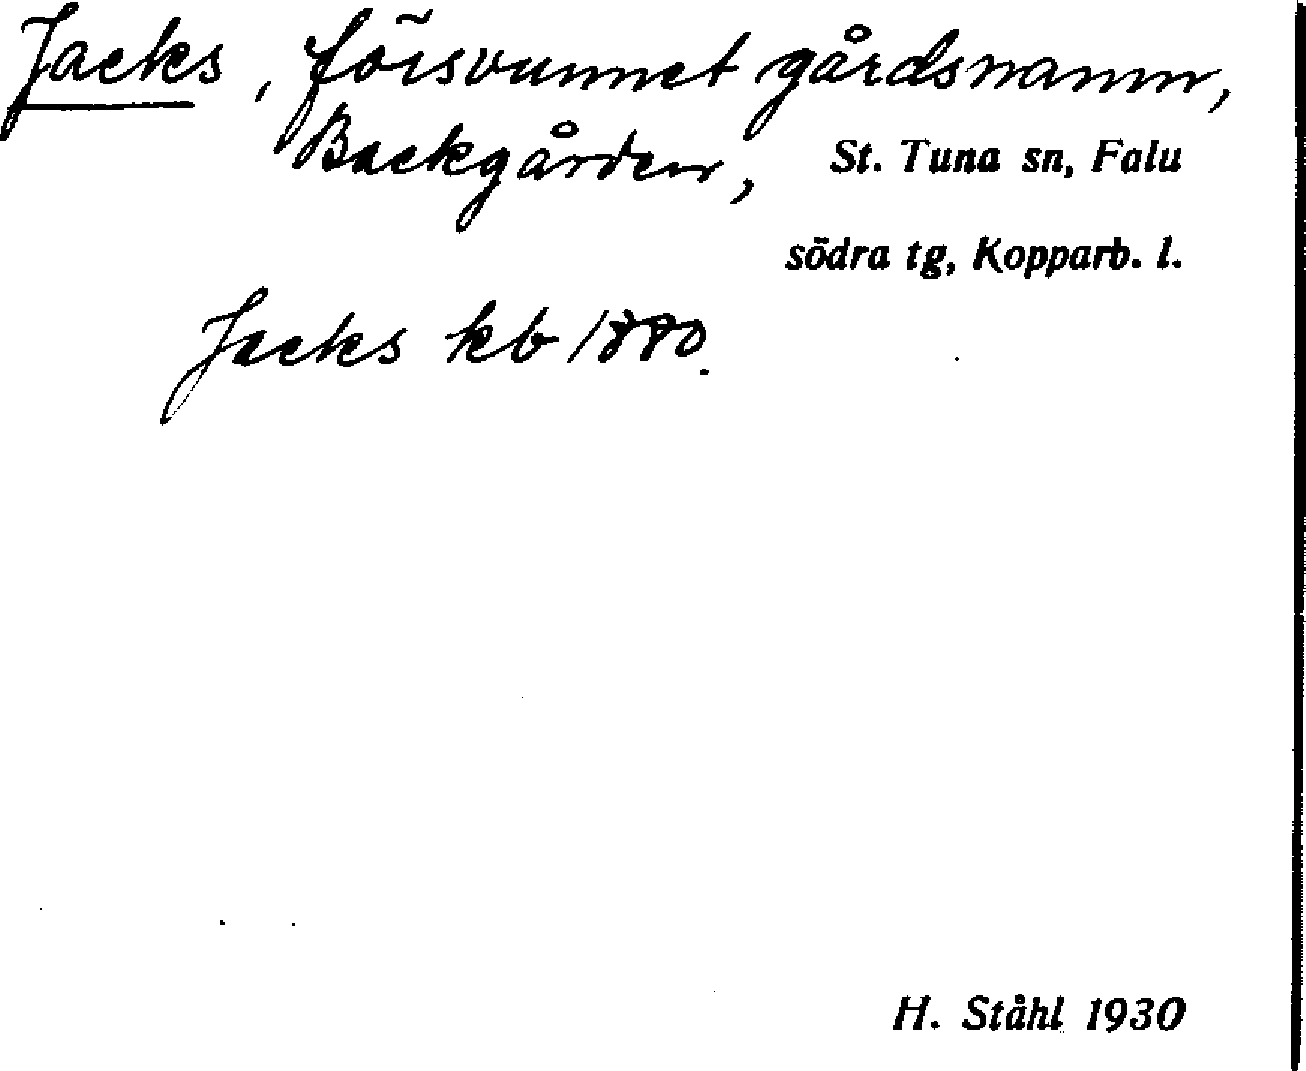 Jacks, försvunnet gårdsnamn,
Backgården, St. Tuna sn, Falu
södra tg, Kopparb. l.
Jacks kb 1880.
H. Ståhl 1930